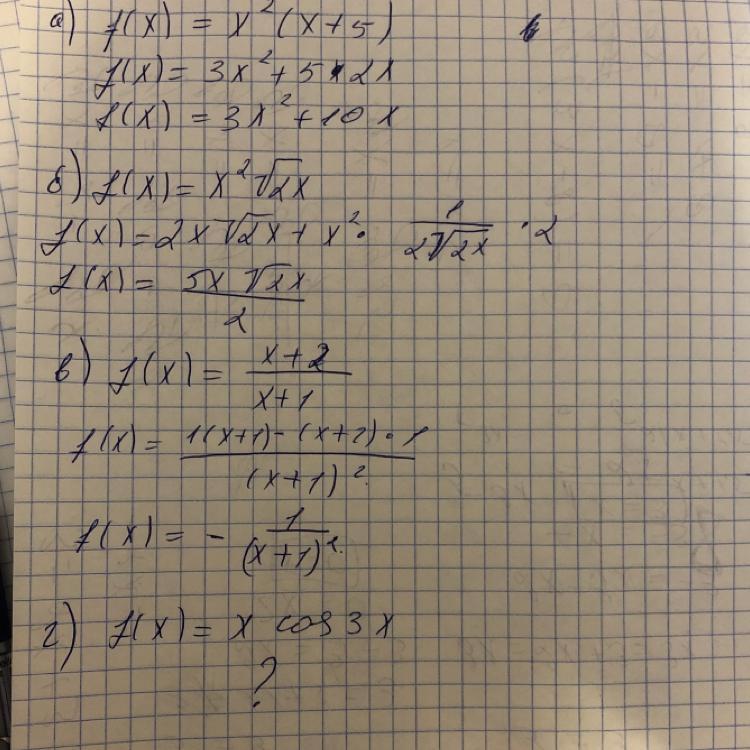 а) f(x) = x²(x+5)
f(x) = 3x²+5·2x
f(x) = 3x²+10x
б) f(x) = x²√2x
f(x) = 2x√2x + x² · 1/(2√2x) · 2
f(x) = 5x√2x / 2
в) f(x) = (x+2)/(x+1)
f(x) = (1(x+1) - (x+2)·1)/(x+1)²
f(x) = - 1/(x+1)²
г) f(x) = x cos 3x
?